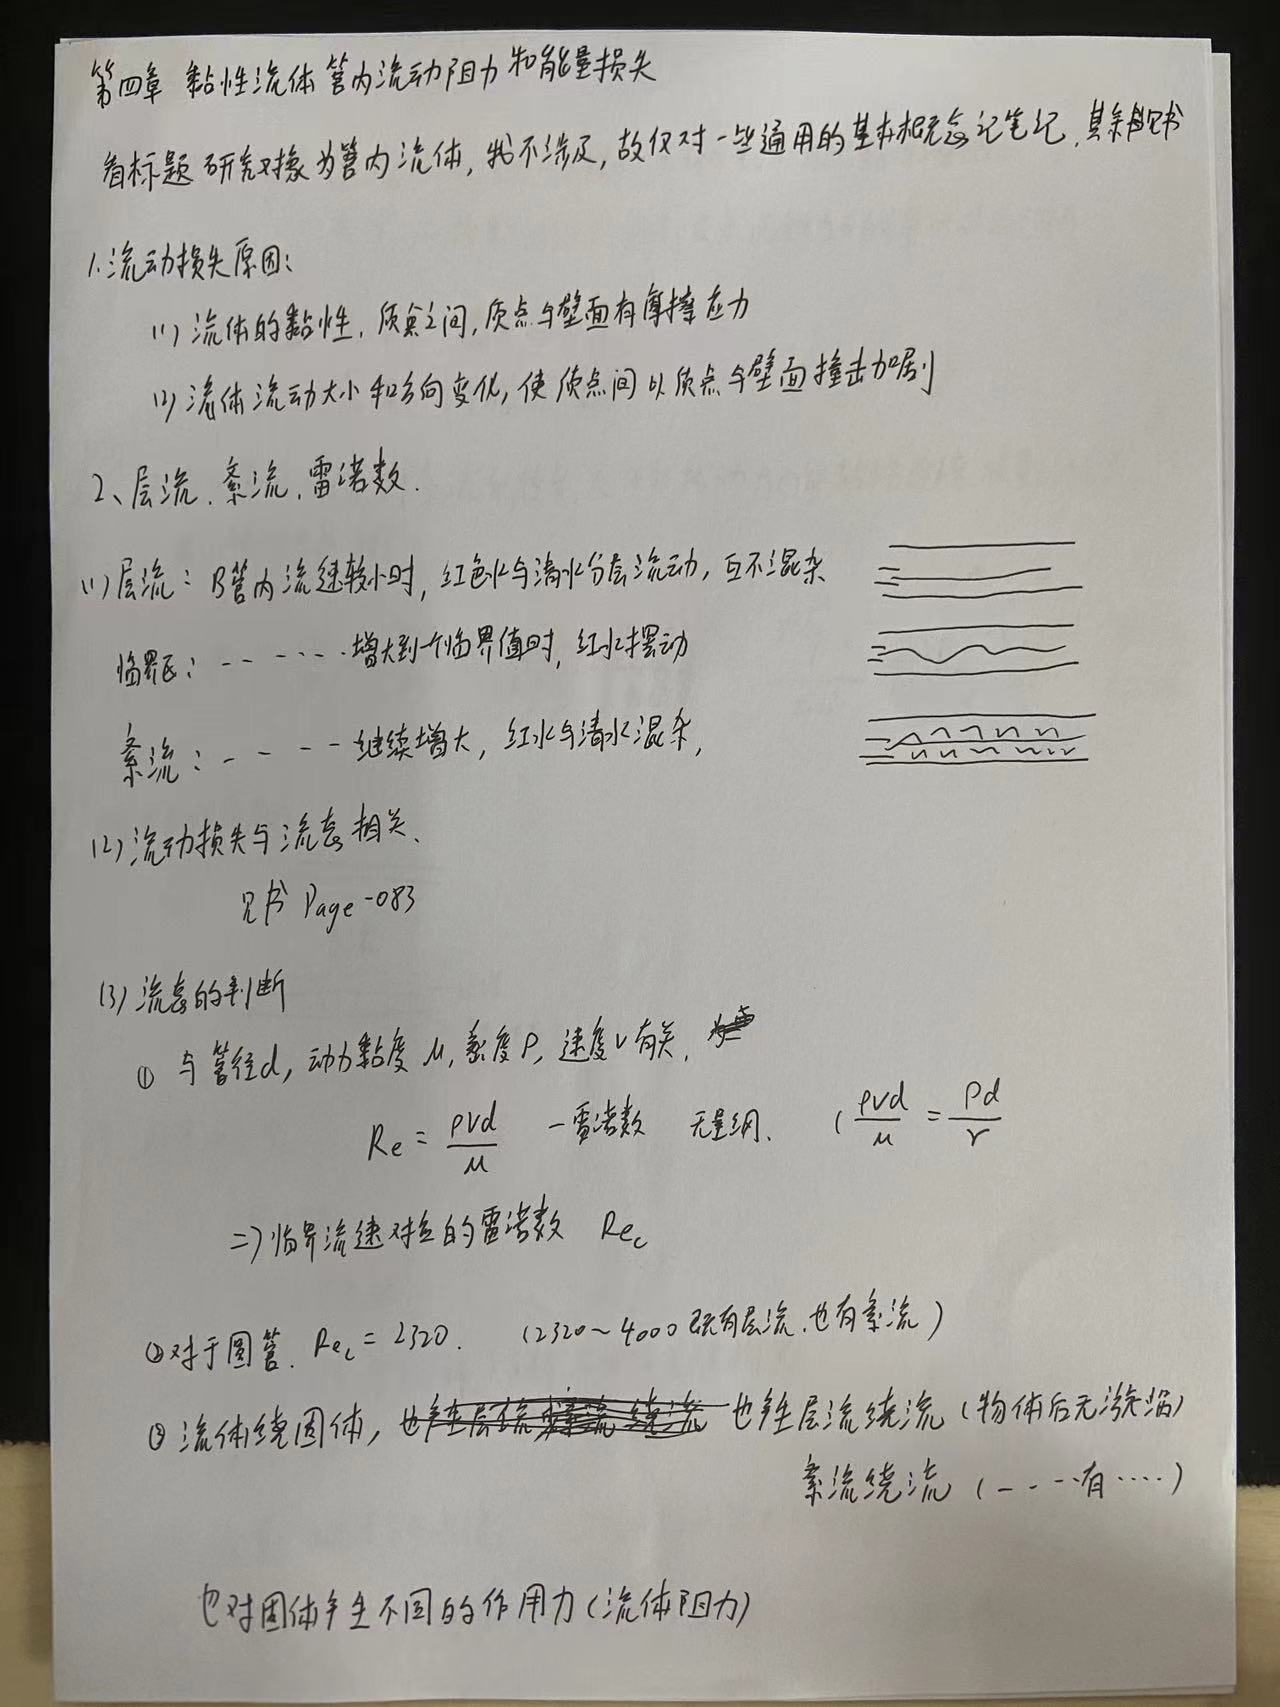 第四章 黏性流体管内流动阻力和能量损失
看标题研究对象为管内流体,我不涉及,故仅对一些通用的基本概念记笔记,其余见书
1.流动损失原因:
(1) 流体的黏性,质点之间,质点与壁面有摩擦应力
(2) 流体流动大小和方向变化,使质点间以质点与壁面撞击加剧
2、层流、紊流、雷诺数.
(1) 层流:B管内流速较小时,红色水与清水分层流动,互不混杂
临界区:-- ···· 增大到一个临界值时,红水摆动
紊流:- - -- 继续增大,红水与清水混杂,
(2) 流动损失与流态相关、
见书 Page-083
(3) 流态的判断
① 与管径d,动力黏度 μ,密度ρ,速度v有关,
Re = ρvd/μ —雷诺数 无量纲. ( ρvd/μ = ρd/γ
=> 临界流速对应的雷诺数 Rec
②对于圆管. Rec = 2320. (2320~4000既有层流,也有紊流)
③ 流体绕固体, 也产生层流绕流(物体后无漩涡)
紊流绕流 (- - -·有·····)
也对固体产生不同的作用力(流体阻力)